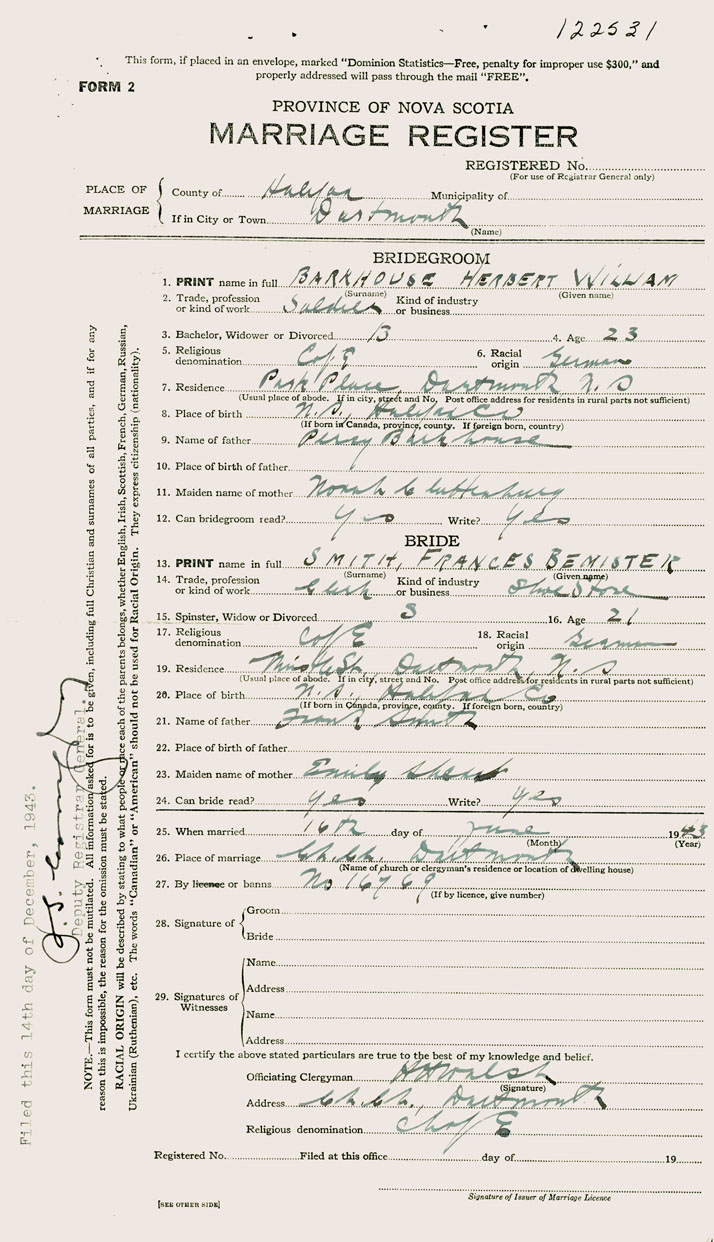 122531
This form, if placed in an envelope, marked “Dominion Statistics—Free, penalty for improper use $300,” and
properly addressed will pass through the mail “FREE”.
FORM 2
PROVINCE OF NOVA SCOTIA
MARRIAGE REGISTER
REGISTERED No.
(For use of Registrar General only)
PLACE OF MARRIAGE
County of Halifax Municipality of
If in City or Town Dartmouth
(Name)
BRIDEGROOM
1. PRINT name in full BARKHOUSE HERBERT WILLIAM
(Surname) (Given name)
2. Trade, profession or kind of work Soldier Kind of industry or business
3. Bachelor, Widower or Divorced B 4. Age 23
5. Religious denomination C of E 6. Racial origin German
7. Residence Park Place, Dartmouth N.S
(Usual place of abode. If in city, street and No. Post office address for residents in rural parts not sufficient)
8. Place of birth N.S., Halifax Co
(If born in Canada, province, county. If foreign born, country)
9. Name of father Percy Barkhouse
10. Place of birth of father
11. Maiden name of mother Norah
12. Can bridegroom read? Yes Write? Yes
BRIDE
13. PRINT name in full SMITH, FRANCES BEMISTER
(Surname) (Given name)
14. Trade, profession or kind of work Clerk Kind of industry or business Shoe Store
15. Spinster, Widow or Divorced S 16. Age 21
17. Religious denomination C of E 18. Racial origin German
19. Residence St, Dartmouth, N.S
(Usual place of abode. If in city, street and No. Post office address for residents in rural parts not sufficient)
20. Place of birth N.S., Halifax Co
(If born in Canada, province, county. If foreign born, country)
21. Name of father Frank Smith
22. Place of birth of father
23. Maiden name of mother Emily
24. Can bride read? Yes Write? Yes
25. When married 16th day of June 1943
(Month) (Year)
26. Place of marriage Ch. Ch. Dartmouth
(Name of church or clergyman's residence or location of dwelling house)
27. By licence or banns No 16769
(If by licence, give number)
28. Signature of
Groom
Bride
29. Signatures of Witnesses
Name
Address
Name
Address
I certify the above stated particulars are true to the best of my knowledge and belief.
Officiating Clergyman HH Walsh
(Signature)
Address Ch. Ch., Dartmouth
Religious denomination Ch of E
Registered No. Filed at this office day of 19
Signature of Issuer of Marriage Licence
[SEE OTHER SIDE]
NOTE.—This form must not be mutilated. All information asked for is to be given, including full Christian and surnames of all parties, and if for any
reason this is impossible, the reason for the omission must be stated.
RACIAL ORIGIN will be described by stating to what people or race each of the parents belongs, whether English, Irish, Scottish, French, German, Russian,
Ukrainian (Ruthenian), etc. The words “Canadian” or “American” should not be used for Racial Origin. They express citizenship (nationality).
Filed this 14th day of December, 1943.
Deputy Registrar General.